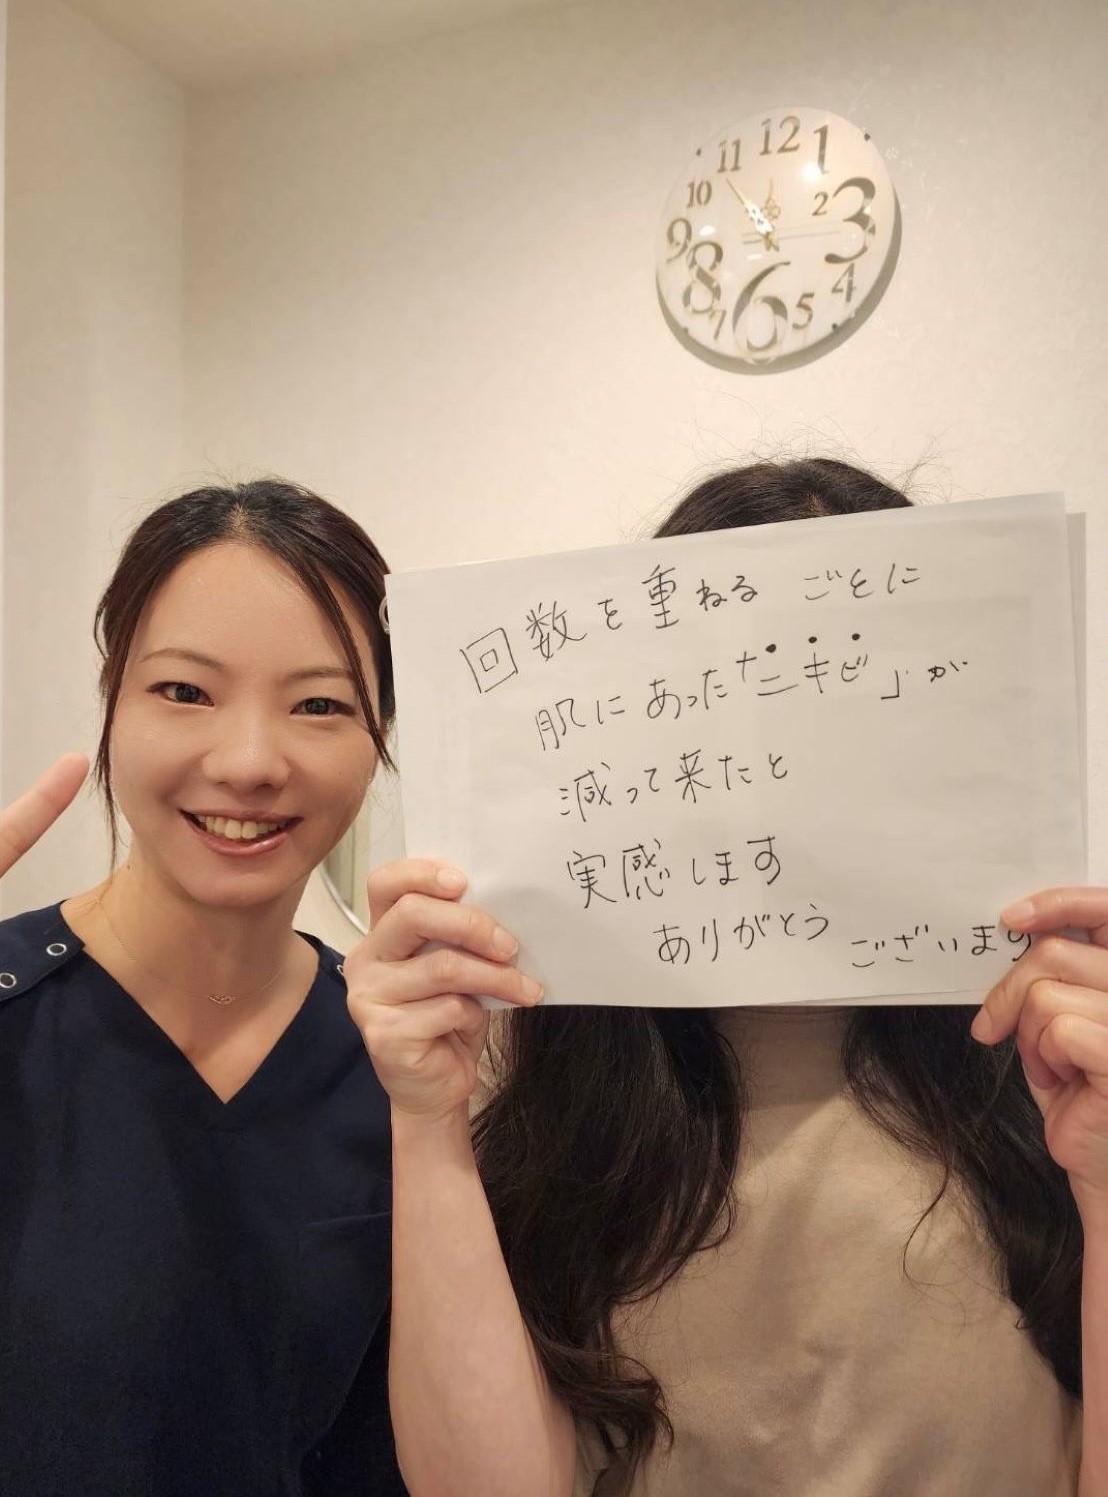 12
1
2
3
4
5
6
7
8
9
10
11
回数を重ねるごとに
肌にあった「ニキビ」が
減って来たと
実感します
ありがとうございます